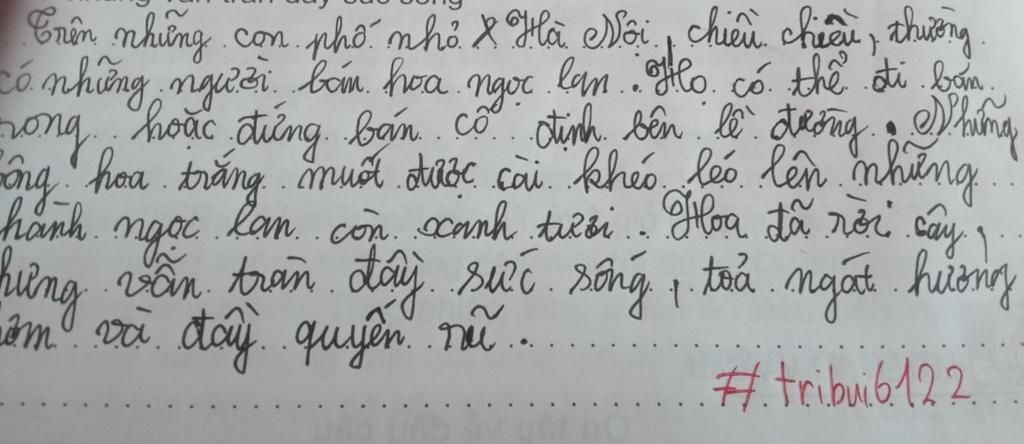 Trên những con phố nhỏ x Hà Nội, chiều chiều, thường
có những người bán hoa ngọc lan. Họ có thể đi bán
rong hoặc đứng bán cố định bên lề đường. Những
bông hoa trắng muốt được cài khéo léo lên những
hành ngọc lan còn xanh tươi. Hoa đã rời cây,
hưng vẫn tràn đầy sức sống, toả ngát hương
hơm và đầy quyến rũ.
#tribui6122